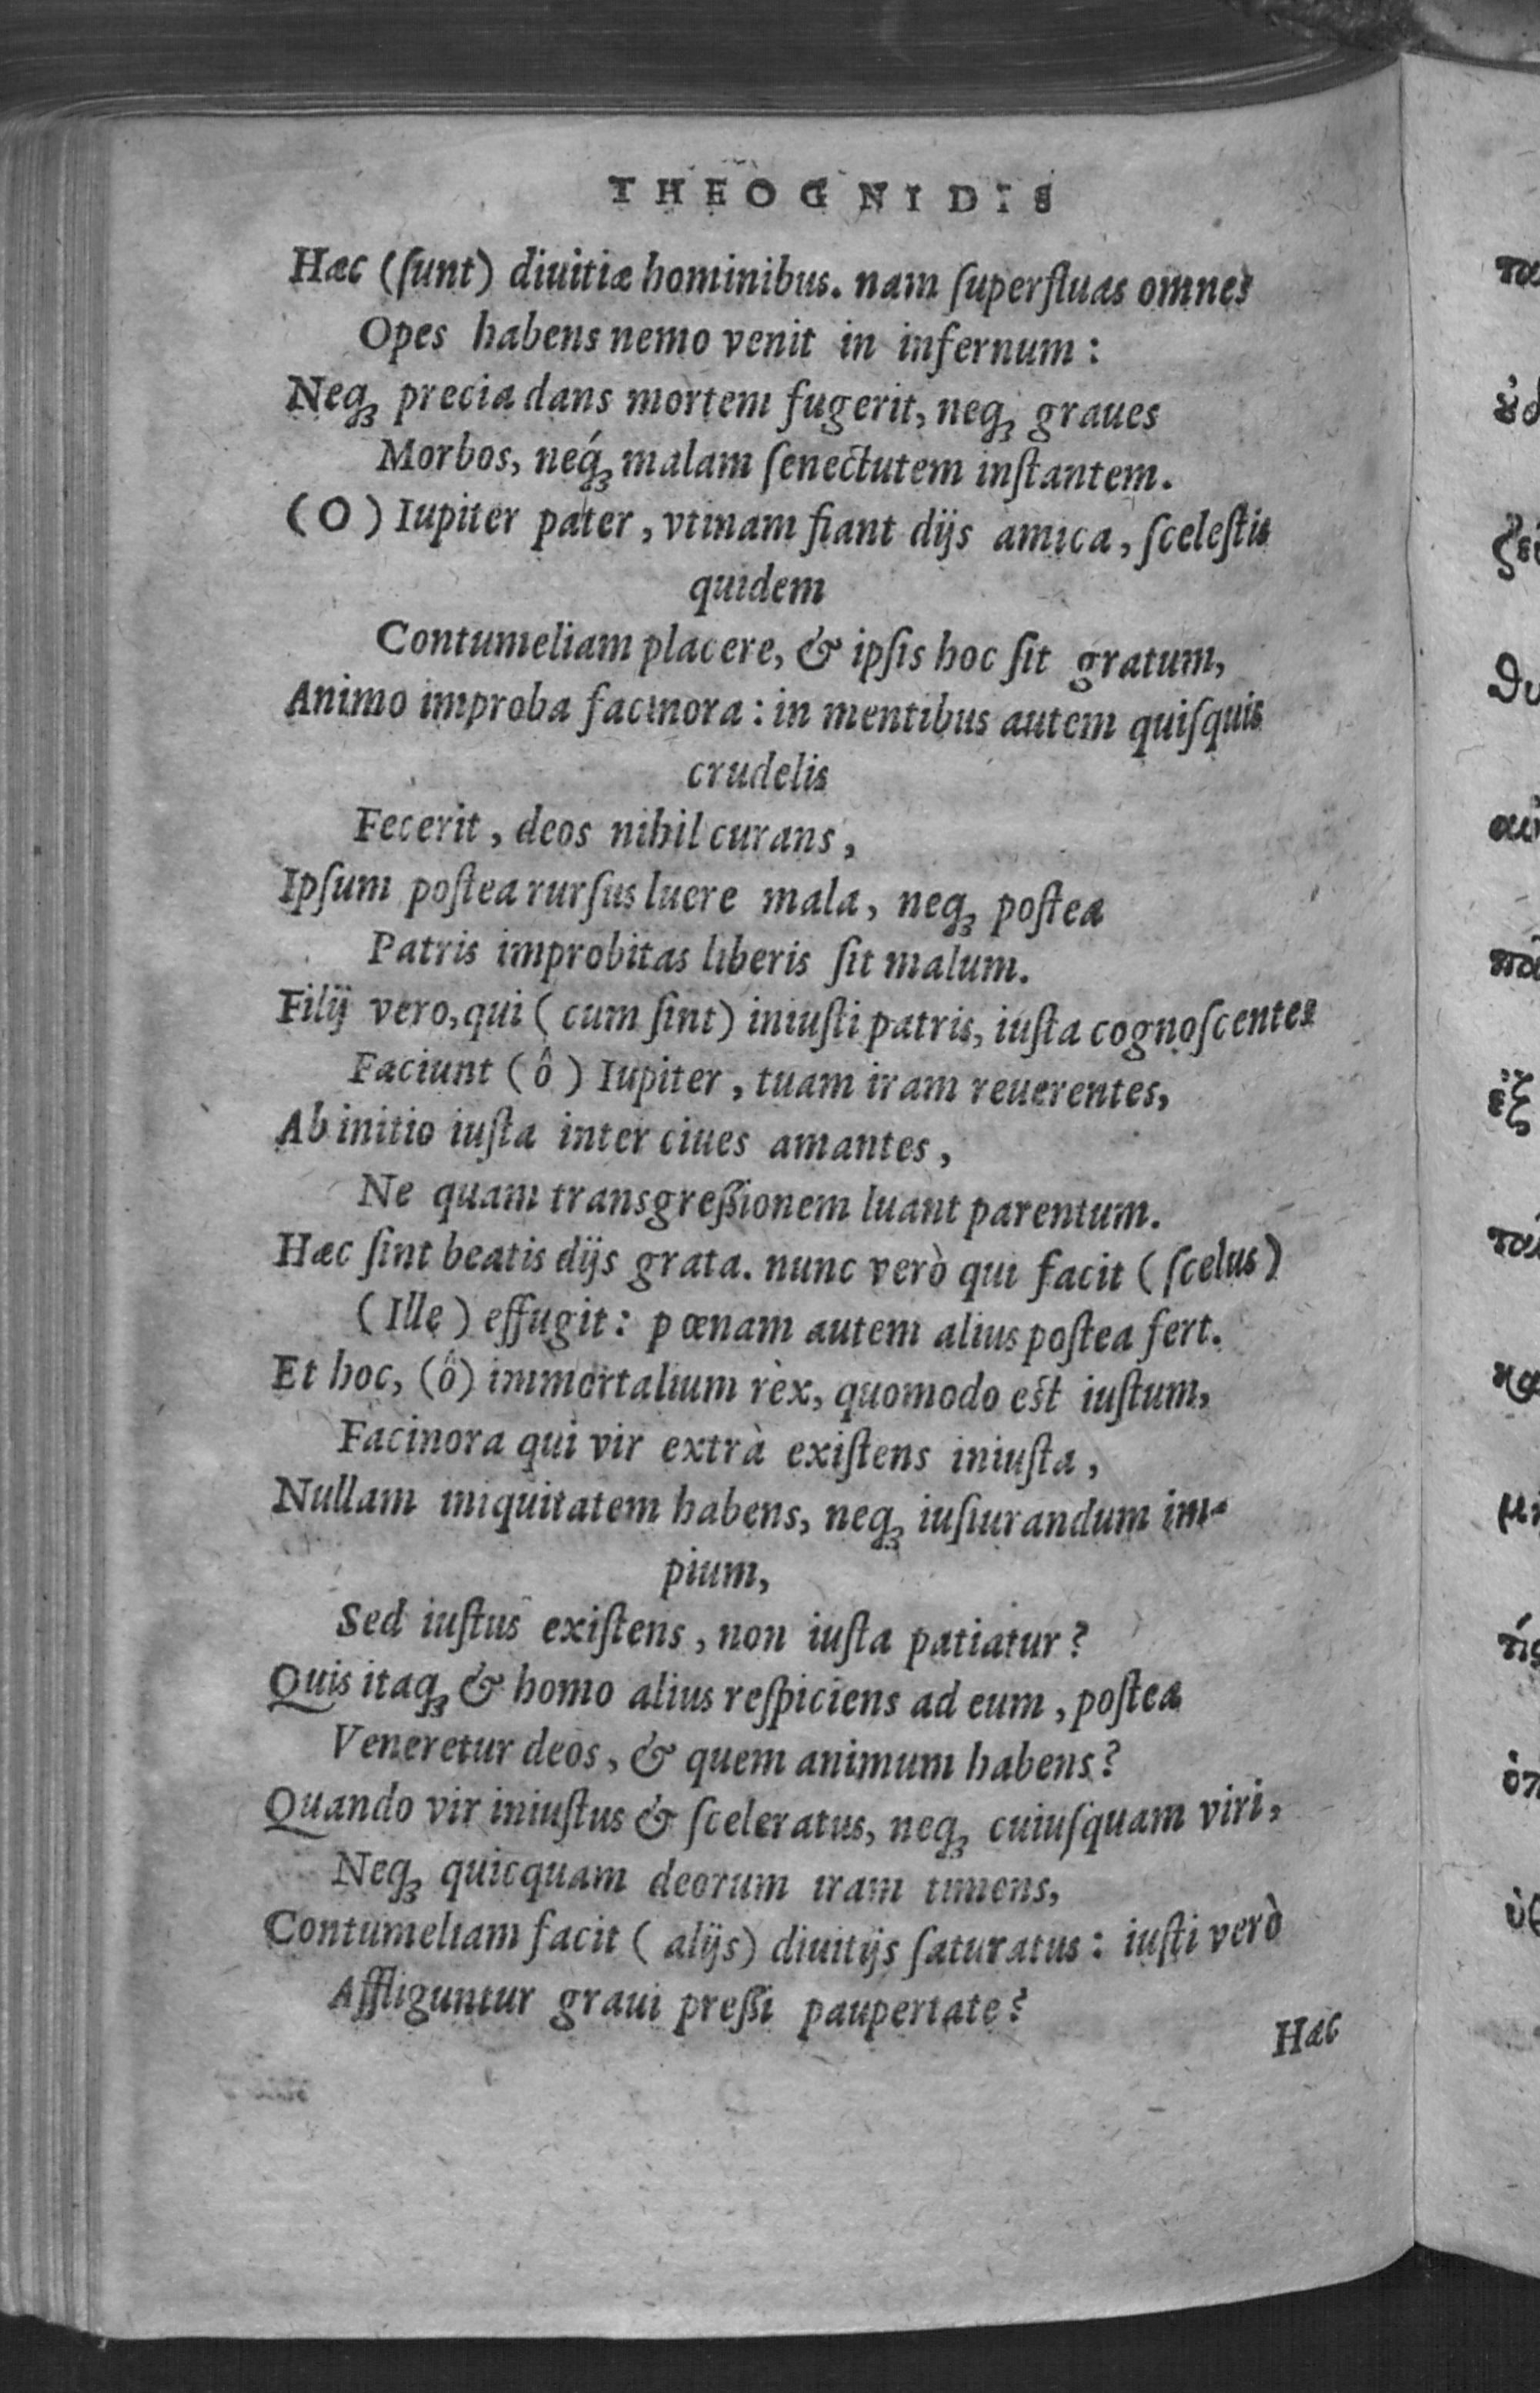 THEOGNIDIS
Hæc (ſunt) diuitiæ hominibus. nam ſuperfluas omnes
Opes habens nemo venit in infernum :
Neqꝫ precia dans mortem fugerit, neqꝫ graues
Morbos, neq́ꝫ malam ſenectutem inſtantem.
(O) Iupiter pater, vtinam fiant dijs amica, ſceleſtis
quidem
Contumeliam placere, & ipſis hoc ſit gratum,
Animo improba facinora : in mentibus autem quiſquis
crudelis
Fecerit, deos nihil curans,
Ipſum poſtea rurſus luere mala, neqꝫ poſtea
Patris improbitas liberis ſit malum.
Filij vero, qui (cum ſint) iniuſti patris, iuſta cognoſcentes
Faciunt (ô) Iupiter, tuam iram reuerentes,
Ab initio iuſta inter ciues amantes,
Ne quam transgreßionem luant parentum.
Hæc ſint beatis dijs grata. nunc verò qui facit (ſcelus)
(Ille) effugit : pœnam autem alius poſtea fert.
Et hoc, (ô) immortalium rèx, quomodo eſt iuſtum,
Facinora qui vir extrà exiſtens iniuſta,
Nullam iniquitatem habens, neqꝫ iuſiurandum im-
pium,
Sed iuſtus exiſtens, non iuſta patiatur ?
Quis itaqꝫ & homo alius reſpiciens ad eum, poſtea
Veneretur deos, & quem animum habens ?
Quando vir iniuſtus & ſceleratus, neqꝫ cuiuſquam viri,
Neqꝫ quicquam deorum iram timens,
Contumeliam facit (alijs) diuitijs ſaturatus : iuſti verò
Affliguntur graui preßi paupertate ?
Hæc